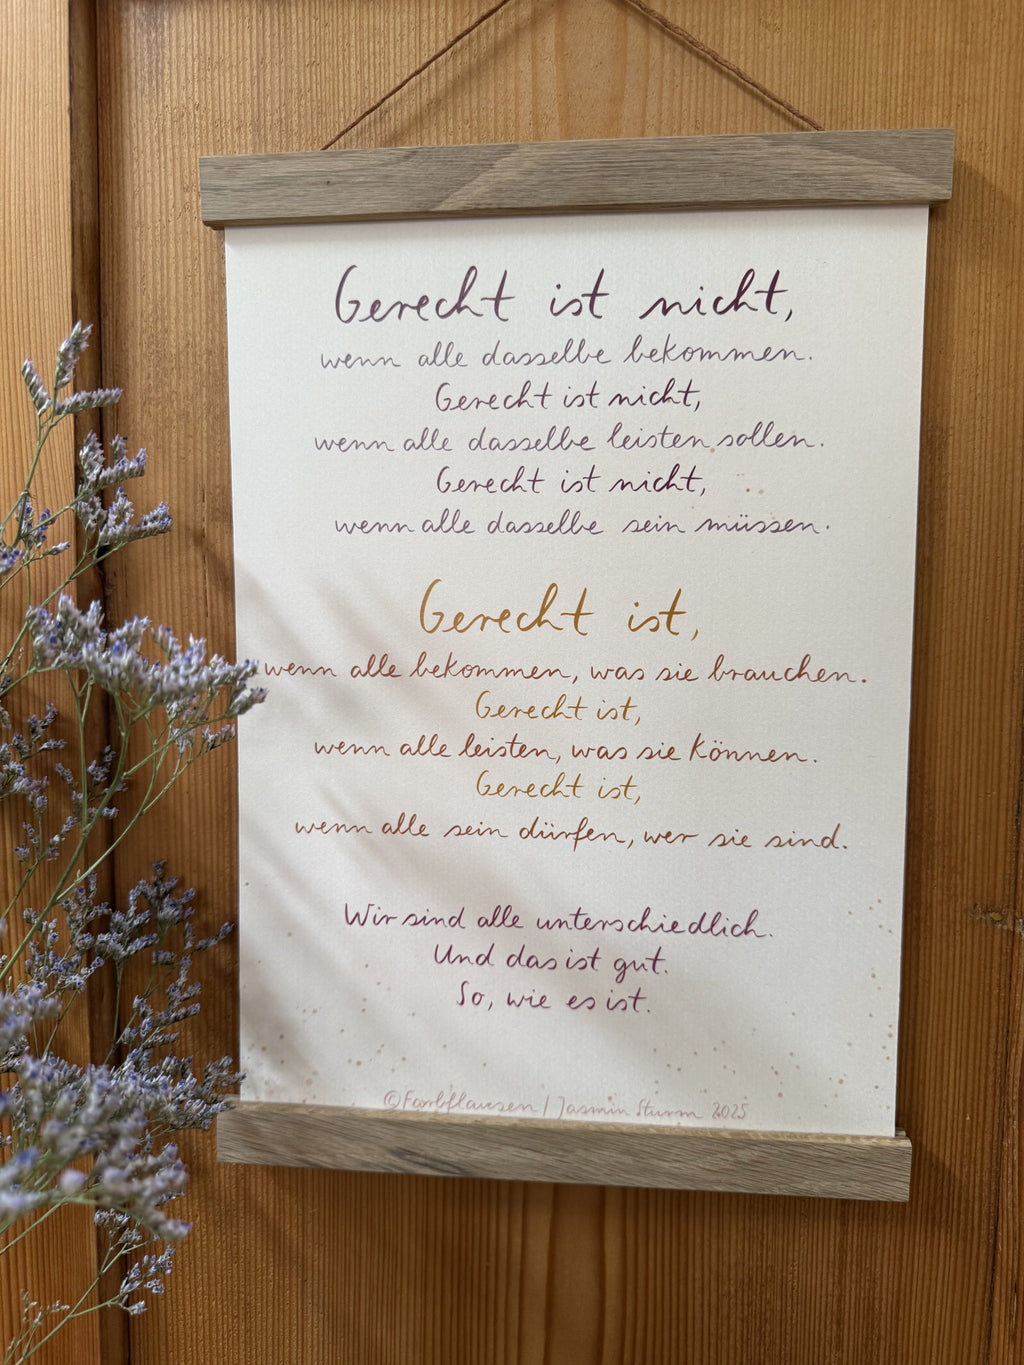 Gerecht ist nicht,
wenn alle dasselbe bekommen.
Gerecht ist nicht,
wenn alle dasselbe leisten sollen.
Gerecht ist nicht,
wenn alle dasselbe sein müssen.
Gerecht ist,
wenn alle bekommen, was sie brauchen.
Gerecht ist,
wenn alle leisten, was sie können.
Gerecht ist,
wenn alle sein dürfen, wer sie sind.
Wir sind alle unterschiedlich.
Und das ist gut.
So, wie es ist.
©Farbflausen | Jasmin Sturm 2025